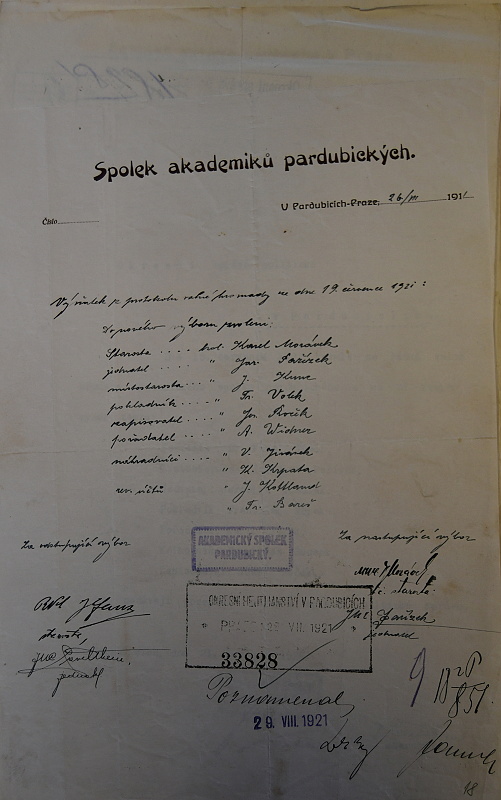 Spolek akademiků pardubických.
V Pardubicích-Praze, 26/VII 1921
Číslo
Výňatek z protokolu valné hromady ze dne 19. července 1921:
Do nového výboru zvoleni:
Starosta .... kol. Karel Morávek
jednatel .... " Jar. Pařízek
místostarosta .. " J. Kunc
pokladník .... " Fr. Volek
zapisovatel .... " Jos. Ročík
pořadatel .... " A. Widner
náhradníci .... " V. Jirásek
" K. Krpata
rev. účtů " J. Kottland
" Fr. Bareš
Za odstupující výbor
Za nastupující výbor
AKADEMICKÝ SPOLEK
PARDUBICKÝ.
t.č. starosta.
OKRESNÍ HEJTMANSTVÍ V PARDUBICÍCH
VII. 1921
Pařízek
jednatel
starosta,
jednatel
33828
Poznamenal
29. VIII. 1921
9
18